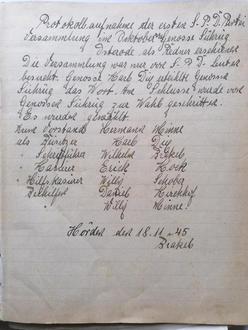 Protokollaufnahme der ersten S.P.D. Partei
Versammlung im Oktober Genosse Sührig
als Redner erschienen
Die Versammlung war nur von S.P.D. Leuten
besucht Genosse Karl Diy erteilte Genosse
Sührig das Wort. Am Schlusse wurde von
Genossen Sührig zur Wahl geschritten.
Es wurden gewählt
Zum Vorstand Hermann Minne
als Karl Diy
" Schriftführer Wilhelm Brakel
" Kassierer Erich Kock
" Hilfskassierer Willy Schober
Beihilfen Daniel Kirchhof
" Willy Minne!
Hörden den 18.11.45
Brakel